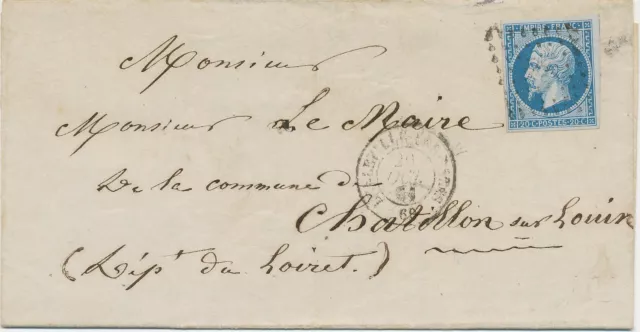 EMPIRE FRANC.
20 C. POSTES 20 C.
Monsieur
Monsieur Le Maire
De la commune de
Chatillon sur Louin
(Dépt du Loiret.)
60